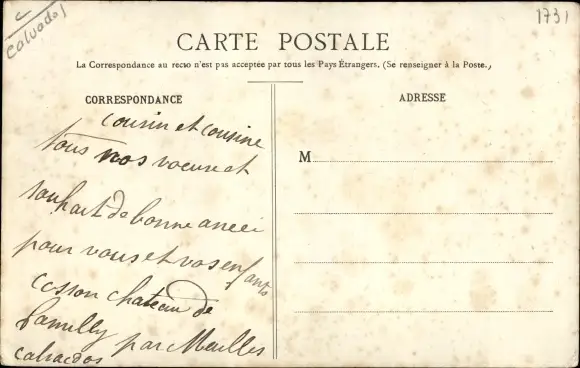 Calvados
1731
CARTE POSTALE
La Correspondance au recto n'est pas acceptée par tous les Pays Étrangers. (Se renseigner à la Poste.)
CORRESPONDANCE
cousin et cousine
tous nos voeux et
souhait de bonne année
pour vous et vos enfants
cosson chateau de
familly par Meulles
calvados
ADRESSE
M